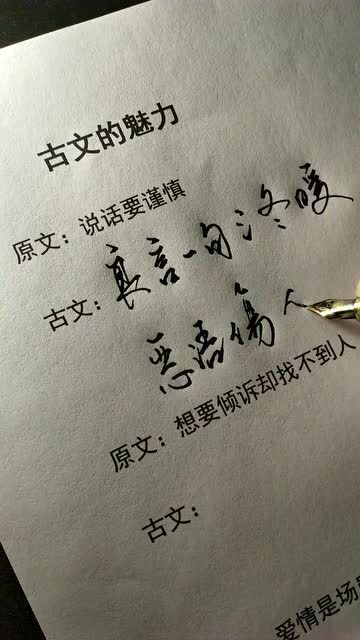 古文的魅力
原文：说话要谨慎
古文：良言一句三冬暖
恶语傷人
原文：想要倾诉却找不到人
古文：
爱情是场